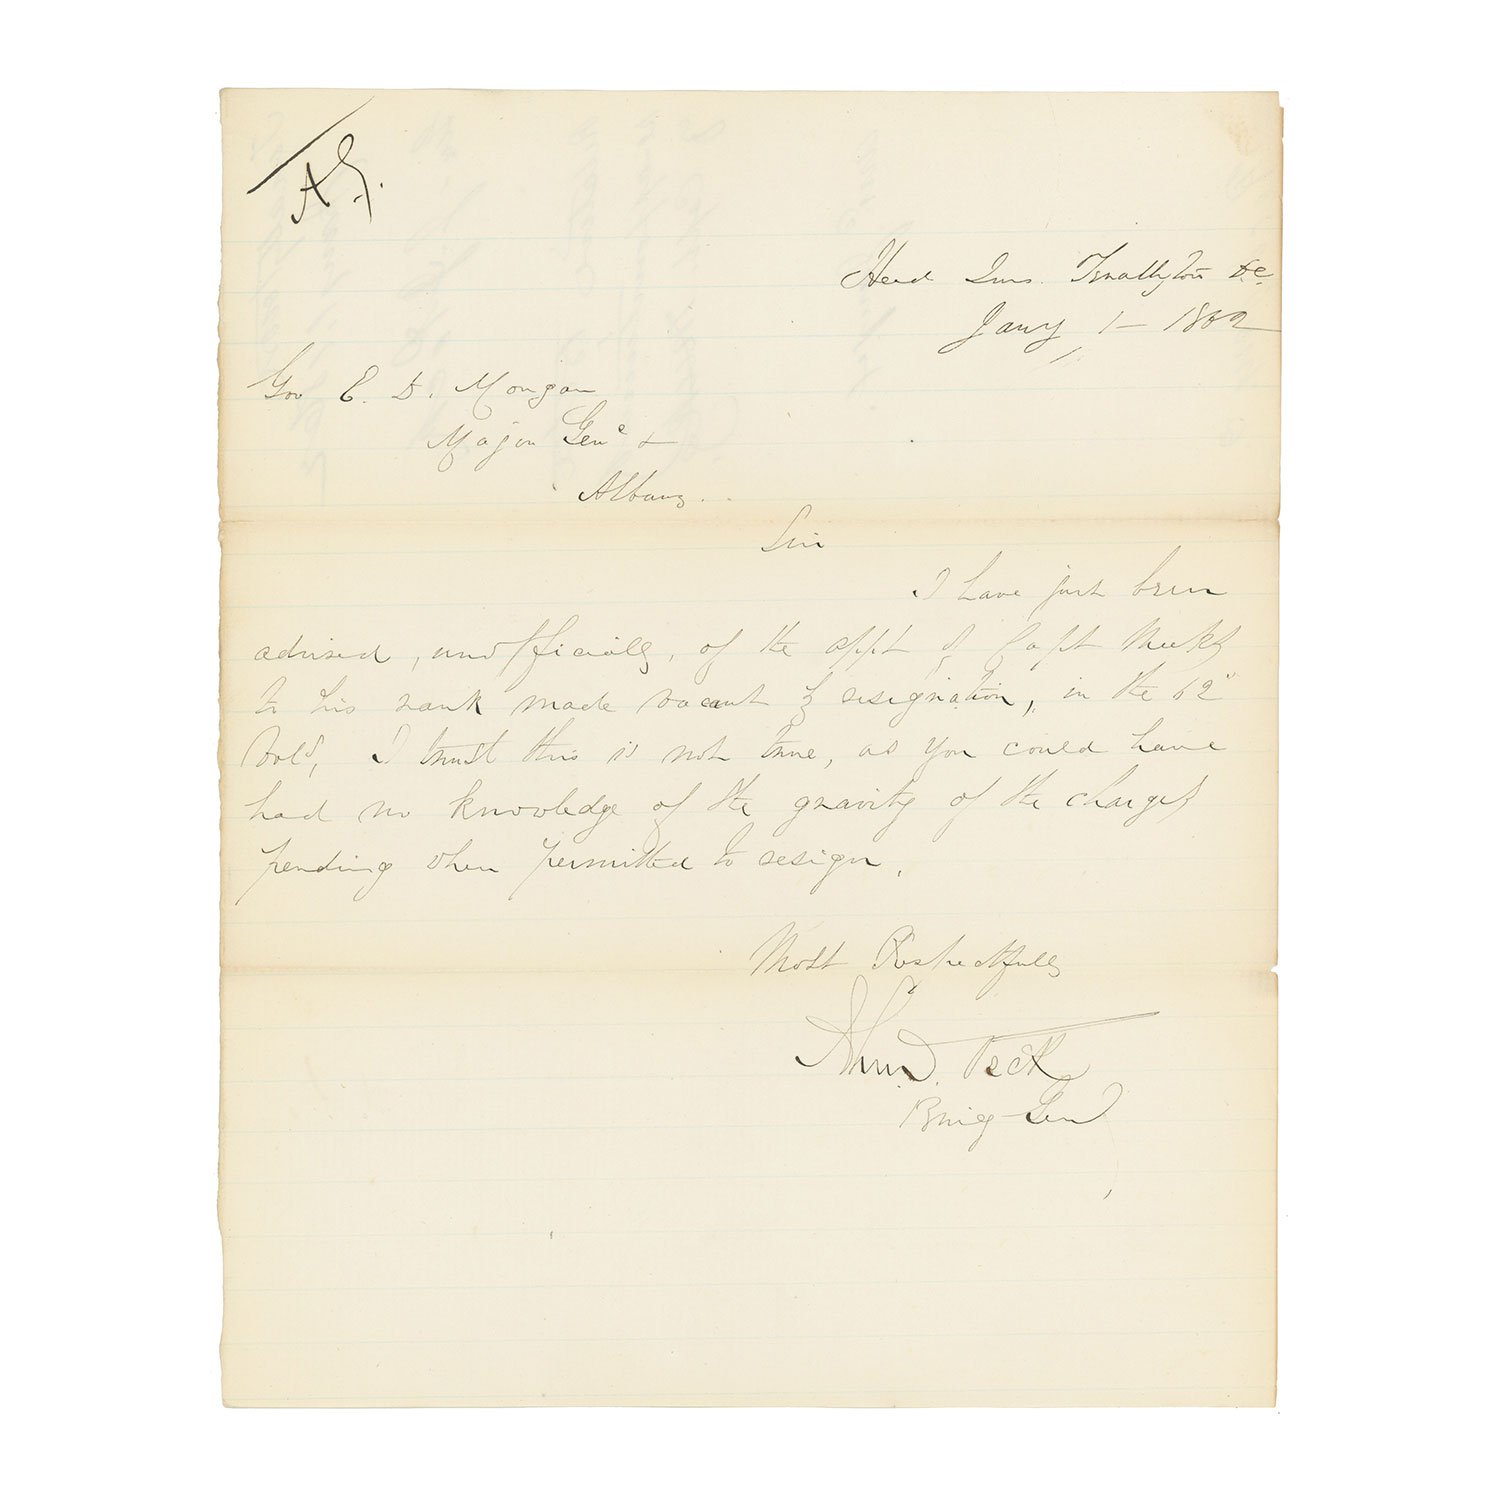 A G.
Head Qurs. Tenallytown DC.
Jany 1 - 1862
Gov E. D. Morgan
Major Genl &
Albany.
Sir
I have just been
advised, unofficially, of the appt of Capt
to his rank made vacant by resignation, in the 62"
Vols, I trust this is not true, as you could have
had no knowledge of the gravity of the charges
pending when permitted to resign.
Most Respectfully
Jno. J. Peck
Brig Genl